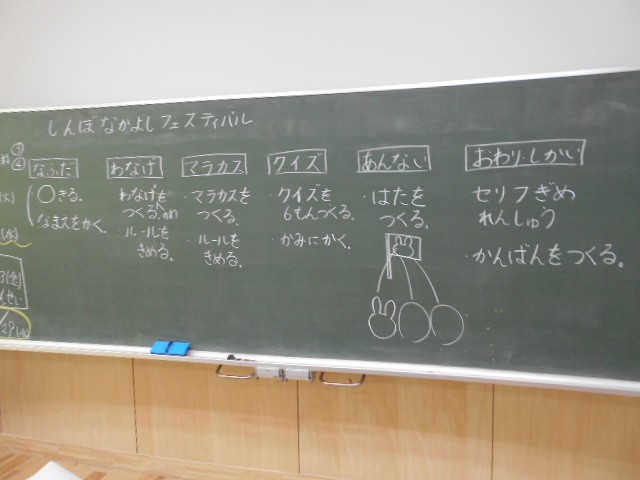 しんぼなかよしフェスティバル
なふだ
○きる。
なまえをかく。
わなげ
わなげを
つくる。
・ルールを
きめる。
マラカス
・マラカスを
つくる。
・ルールを
きめる。
クイズ
・クイズを
6もんつくる。
・かみにかく。
あんない
・はたを
つくる。
おわり・しかい
セリフぎめ
れんしゅう
・かんばんをつくる。